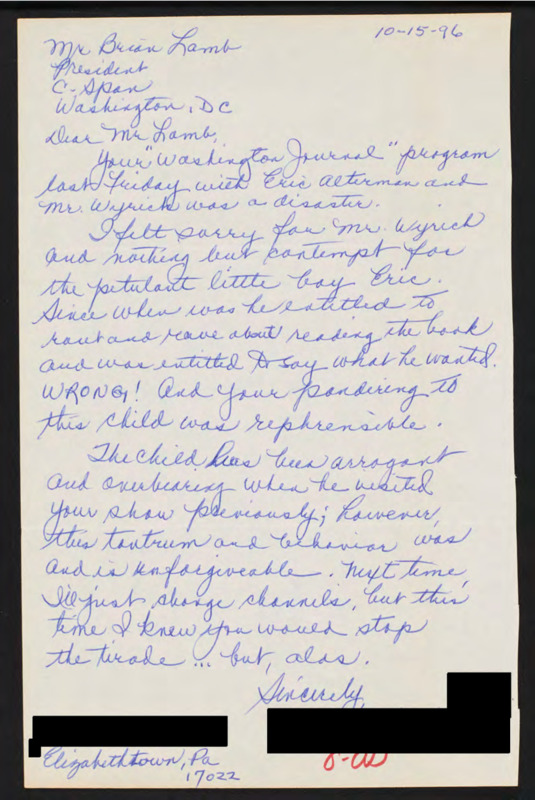 10-15-96
Mr Brian Lamb
President
C-Span
Washington, DC
Dear Mr Lamb,
Your "Washington Journal" program
last Friday with Eric Alterman and
Mr. Wyrich was a disaster.
I felt sorry for Mr. Wyrich
and nothing but contempt for
the petulant little boy Eric.
Since when was he entitled to
rant and rave about reading the book
and was entitled to say what he wanted.
WRONG! And your pandering to
this child was rephrensible.
The child has been arrogant
and overbearing when he visited
your show previously; however,
this tantrum and behavior was
and is unforgiveable. Next time,
I'll just change channels, but this
time I knew you would stop
the tirade ... but, alas.
Sincerely,
Elizabethtown, Pa
17022